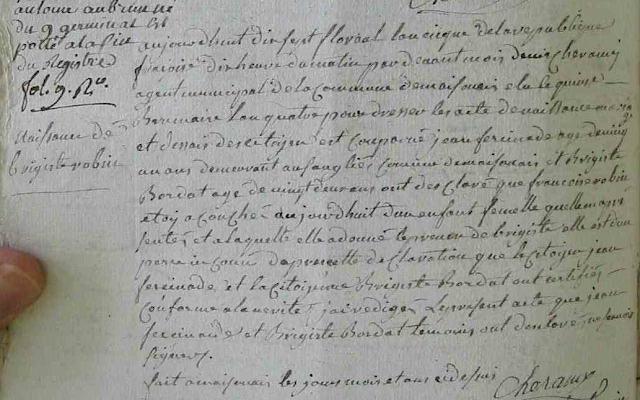 du 9 germinal est
porté a la fin
du Registre
fol. 9. Ro.
Naissance de
brigiste robin
aujourdhuit dix sept floreal lan cinque de la republique
fransoise dix heure du matin par devant moi denis Cheramy
agent municipal de la Commune demaisonais elu le quinse
Brumaire lan quatre pour dresser les acte de naissance mariage
et desais des citoyen est Comparuë jean fereinade age de vingt
un ans demeurant au Commune demaisonais et Brigiste
Bordat age de vingt deux ans ont des Claré que francoise robin
etoy acouchéz aujourdhuit dun enfant femelle quelle mans
sentéz et a laquelle elle a donné le prenom de brigiste elle est don
pere in Connû dapres cette declaration que le Citoyen jean
fereinade et la Citoienne Brigiste Bordat ont certifiés
Conforme a la verité j'ai rediger le present acte que jean
fereinade et Brigiste Bordat temoins ont declaré ne savoir
signer.
fait a maisonais les jours mois et ans ci desus
Cheramy